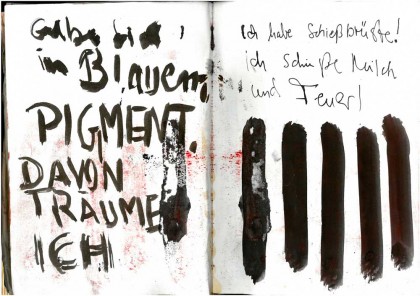 in Blauem
PIGMENT.
DAVON
TRÄUME
ICH
Ich habe Schießbrüste!
ich schieße Milch
und Feuer!